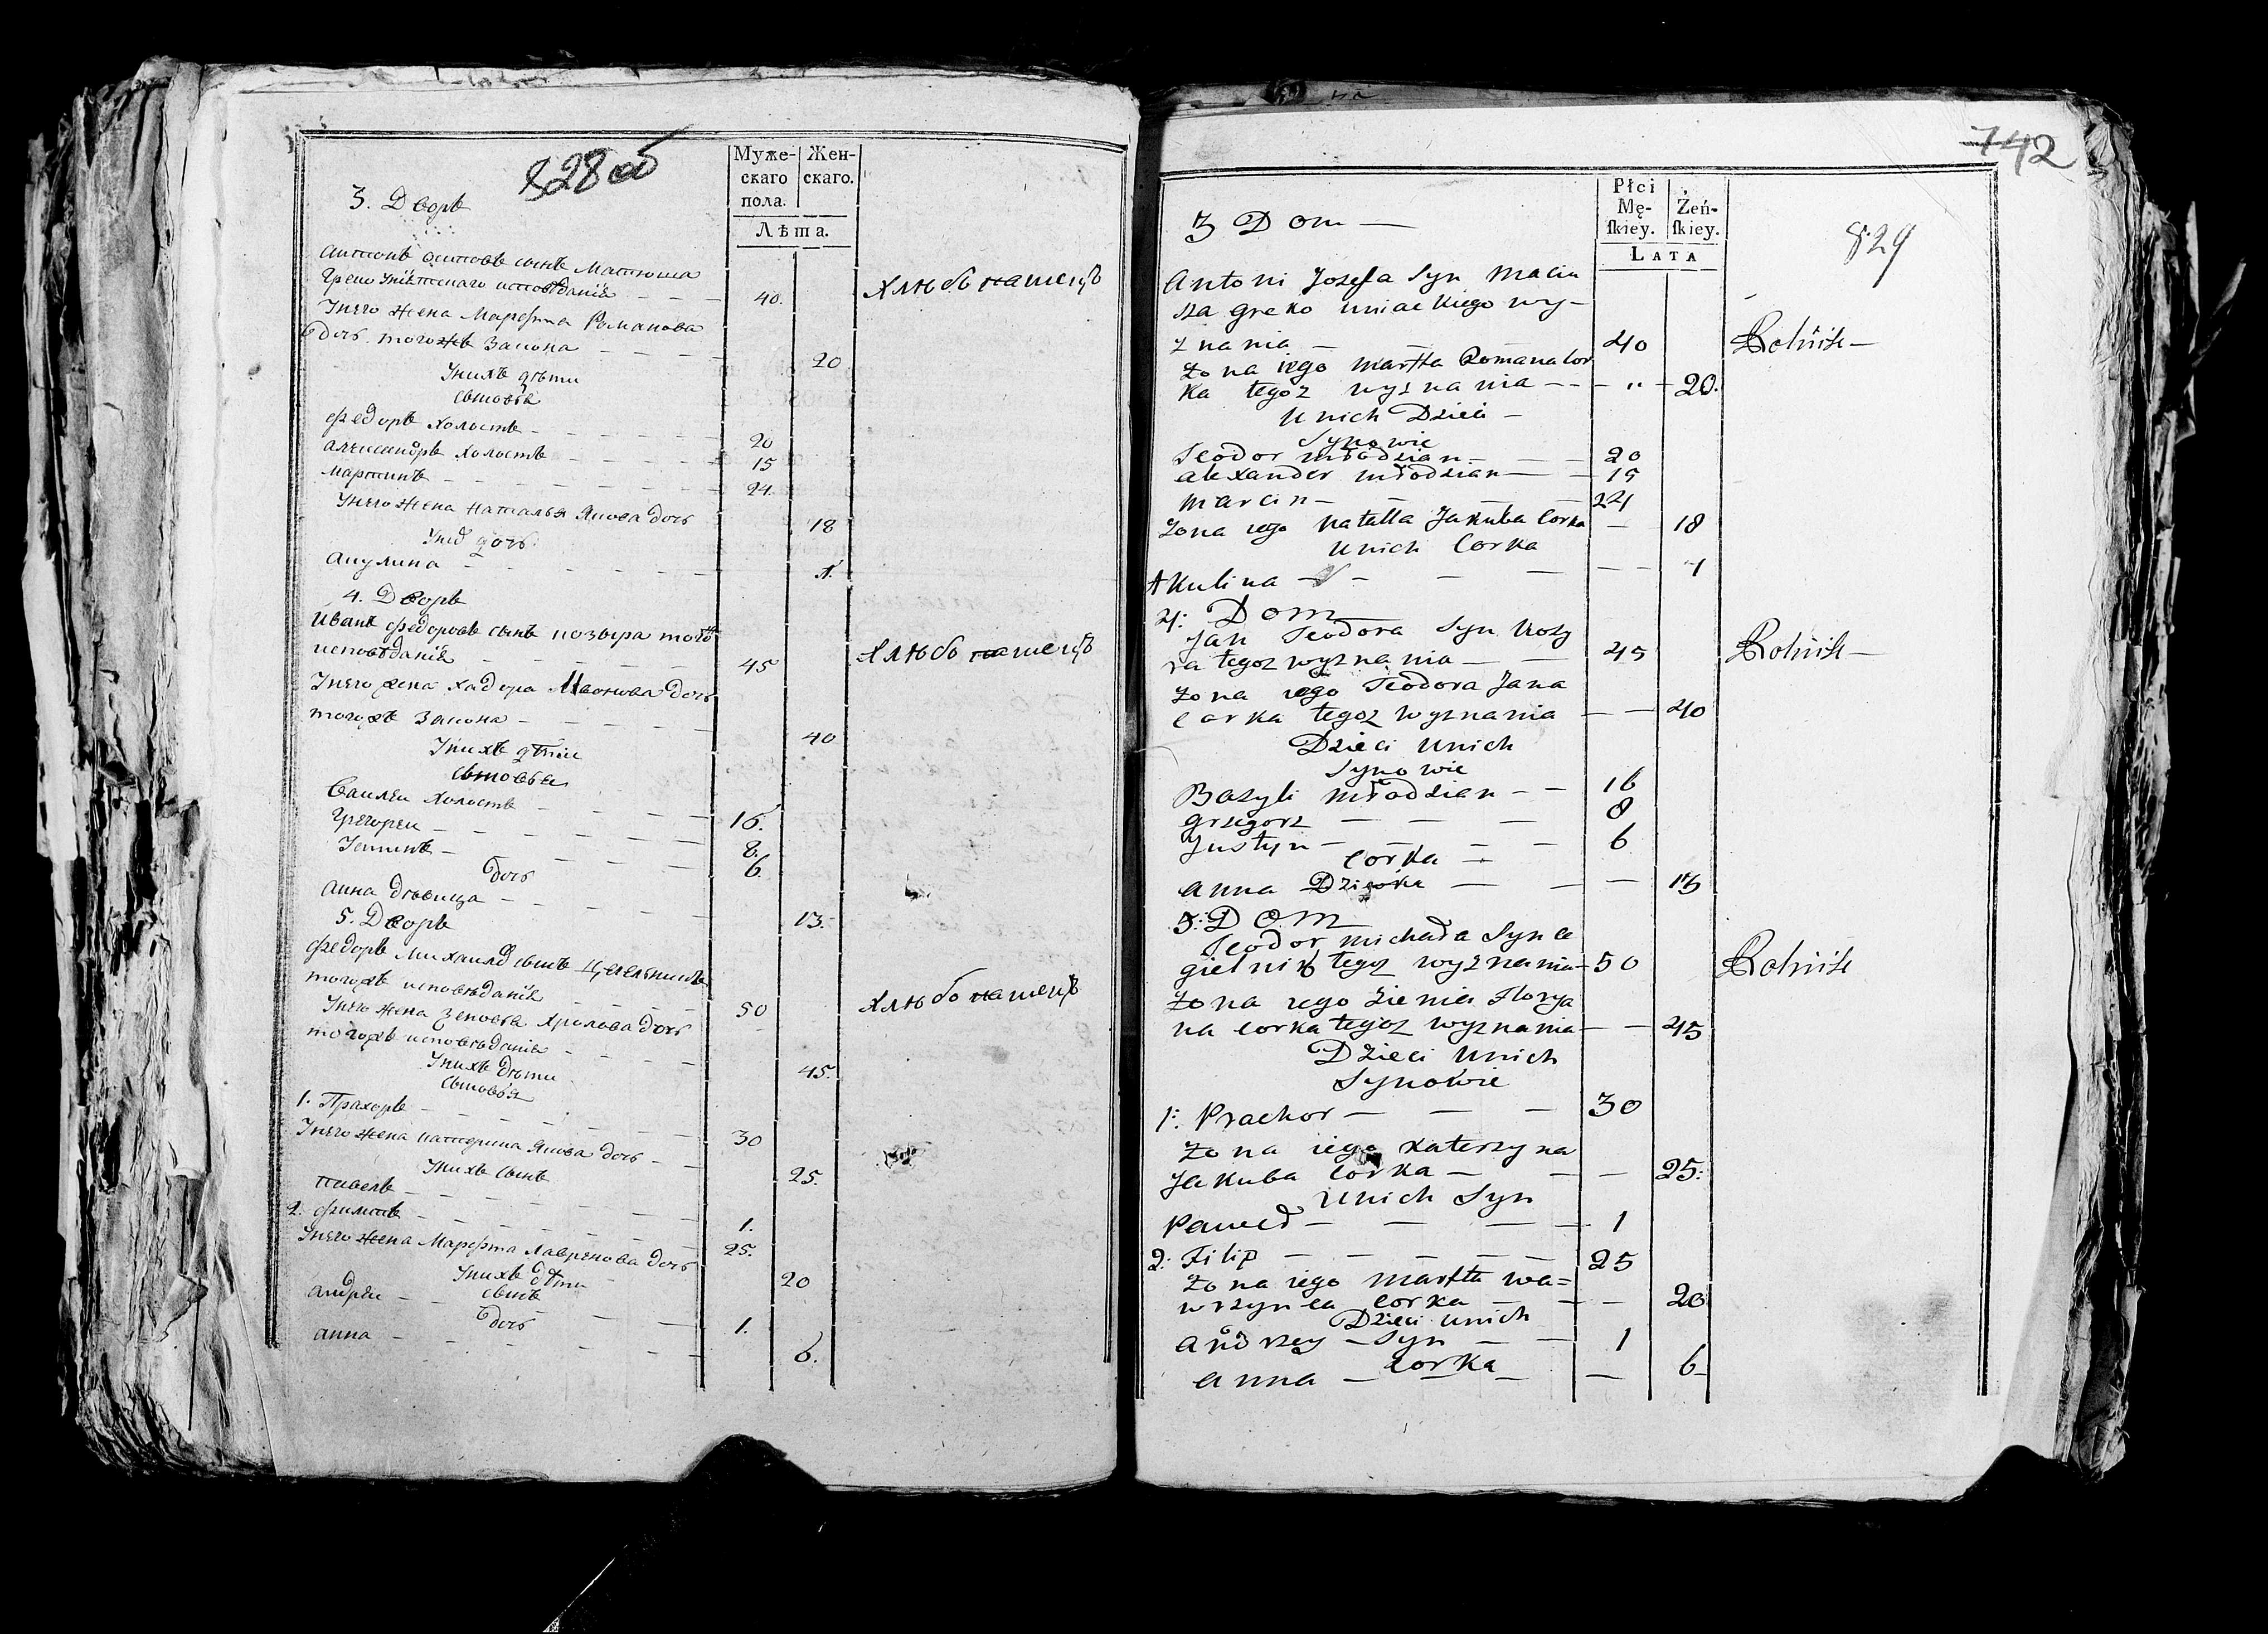 828 об
3. Дворъ
Муже-
скаго
пола.
Жен-
скаго.
Лѣта.
Антонъ осиповъ сынъ Матюша
Греко Унѣтскаго исповѣданія - - - 40. Хлѣбопашецъ
У него жена Марфта Романова
дочь. тогожъ Закона - - - - 20
У нихъ дѣти
сыновья
Федоръ холостъ - - - - 20
Александръ холостъ - - - - 15
Мартинъ - - - - - - 24.
У него жена Наталья Якова дочь 18
У них дочь
Акулина - - - - - - 1.
4. Дворъ
Иванъ федоровъ сынъ козыра того
исповѣданія - - - - - 45 Хлѣбопашецъ
У него жена Хадора Иванова дочь
тогожъ Закона - - - - 40
У нихъ дѣти
сыновья
Василеи холостъ - - - - 16.
Григореи - - - - - - 8.
Устинъ - - - - 6.
дочь
Анна дѣвица - - - - 13.
5. Дворъ
федоръ Михаила сынъ Цегельникъ
тогожъ исповѣданія - - - 50 Хлѣбопашецъ
У него жена Зеновья Хролова дочь
тогожъ исповѣданія - - - - 45.
У нихъ дѣти
сыновья
1. Прахоръ - - - - - - 30
У него жена катерина Якова дочь - - 25.
У нихъ сынъ
павелъ - - - - - - 1.
2. филипъ - - - - - - 25.
У него жена Марфта Лавренова дочь 20
У нихъ дѣти
сынъ
андреи - - - - - 1.
дочь
анна - - - - - - 6.
742
829
3 Dom —
Płci
Mę-
ſkiey.
Żeń-
ſkiey.
LATA
Antoni Jozefa Syn Maciu
sza greko uniackiego wy-
znania — — — — 40 Rolnik —
żona iego Marfta Romana cor
ka tegoż wyznania - - - " - 20.
u nich Dzieci -
Synowie
Teodor młodzian — — — 20
alexander młodzian — — 15
Marcin — — — — — 24
żona iego Natalla Jakuba Corka — 18
unich Corka
Akulina — — — — — 1
4: Dom
Jan Teodora Syn Kozy
ra tegoz wyznania — — 45 Rolnik —
żona iego Teodora Jana
corka tegoz wyznania — — 40
Dzieci unich
Synowie
Bazyli młodzian - - 16
Grzegorz — — — 8
Justyn — — — — 6
Corka —
anna Dziewka — — — 13
5: DOM
Teodor Michała Syn ce
gielnik tegoz wyznania - 50 Rolnik
żona iego Zienia Florya
na corka tegoz wyznania — — 45
Dzieci unich
Synowie
1: Prachor — — — 30
żona iego Katerzyna
Jakuba Corka — — — 25:
unich Syn
Paweł — — — — 1
2: Filip — — — — — 25
żona iego Marfta wa=
wrzynca corka — — — 20
Dzieci unich
andrzey — Syn — — 1
corka
anna — — — — 6 -